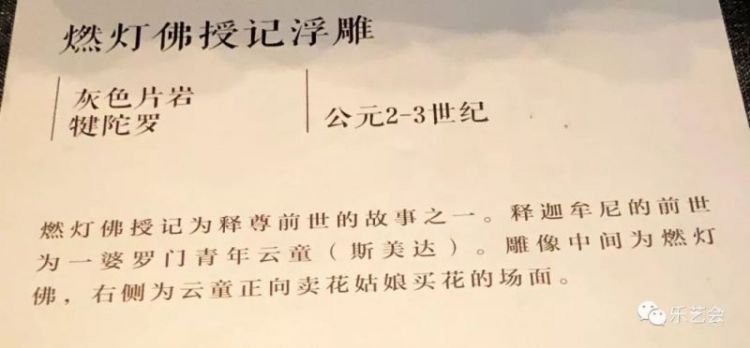 燃灯佛授记浮雕
灰色片岩
犍陀罗
公元2-3世纪
燃灯佛授记为释尊前世的故事之一。释迦牟尼的前世
为一婆罗门青年云童（斯美达）。雕像中间为燃灯
佛，右侧为云童正向卖花姑娘买花的场面。
乐艺会